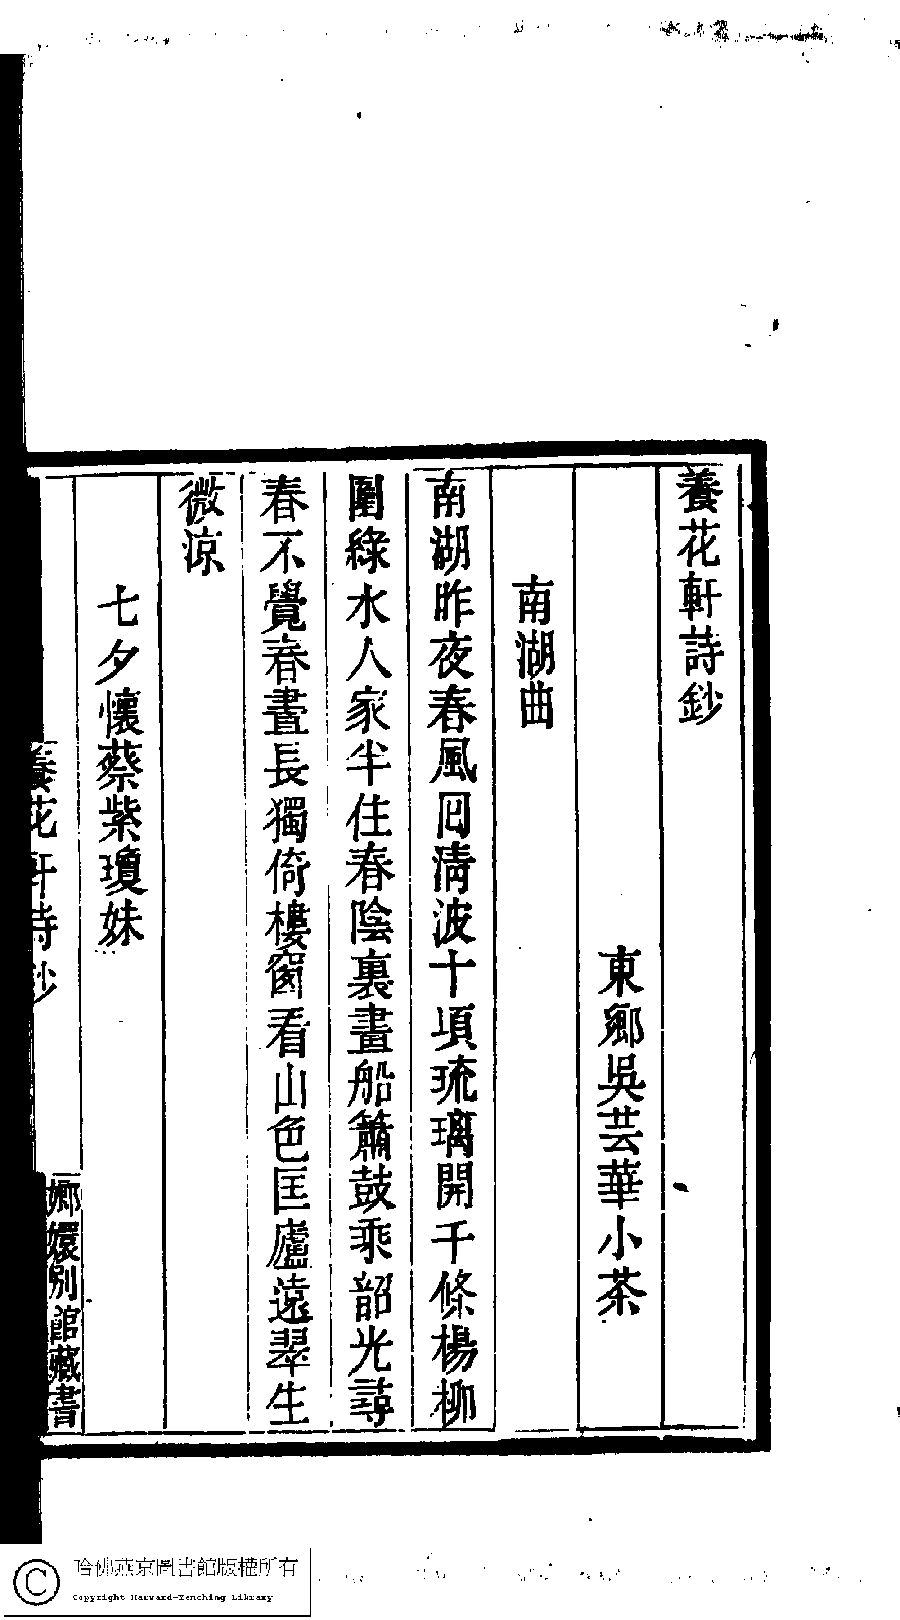 養花軒詩鈔
東鄉吳芸華小茶
南湖曲
南湖昨夜春風囘清波十頃琉璃開千條楊柳
圍綠水人家半住春陰裏畫船簫鼓乘韶光尋
春不覺春晝長獨倚樓窗看山色匡廬遠翠生
微涼
七夕懷蔡紫瓊妹
養花軒詩鈔
嫏嬛別館藏書
哈佛燕京圖書館版權所有
Copyright Harvard-Yenching Library